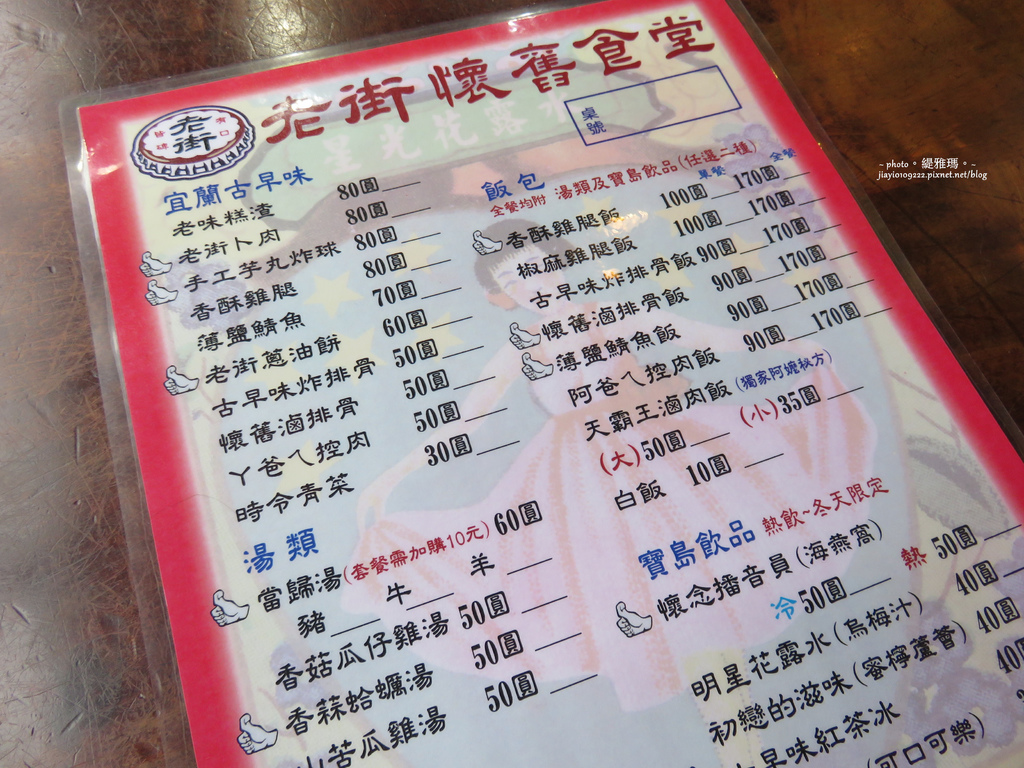 老街懷舊食堂
老街
有口皆碑
桌號
星光花露水
~ photo。緹雅瑪。~
jiayi0109222.pixnet.net/blog
宜蘭古早味
老味糕渣 80圓
老街卜肉 80圓
手工芋丸炸球 80圓
香酥雞腿 80圓
薄鹽鯖魚 70圓
老街蔥油餅 60圓
古早味炸排骨 50圓
懷舊滷排骨 50圓
ㄚ爸ㄟ控肉 50圓
時令青菜 30圓
湯類
當歸湯(套餐需加購10元) 60圓
豬 牛 羊
香菇瓜仔雞湯 50圓
香蒜蛤蠣湯 50圓
山苦瓜雞湯 50圓
飯包
全餐均附 湯類及寶島飲品(任選二種)
單餐 全餐
香酥雞腿飯 100圓 170圓
椒麻雞腿飯 100圓 170圓
古早味炸排骨飯 90圓 170圓
懷舊滷排骨飯 90圓 170圓
薄鹽鯖魚飯 90圓 170圓
阿爸ㄟ控肉飯 90圓 170圓
天霸王滷肉飯 (獨家阿嬤秘方)
(大) 50圓 (小) 35圓
白飯 10圓
寶島飲品 熱飲~冬天限定
懷念播音員(海燕窩)
冷 50圓 熱 50圓
明星花露水(烏梅汁) 40圓
初戀的滋味(蜜檸蘆薈) 40圓
古早味紅茶冰
(可口可樂)